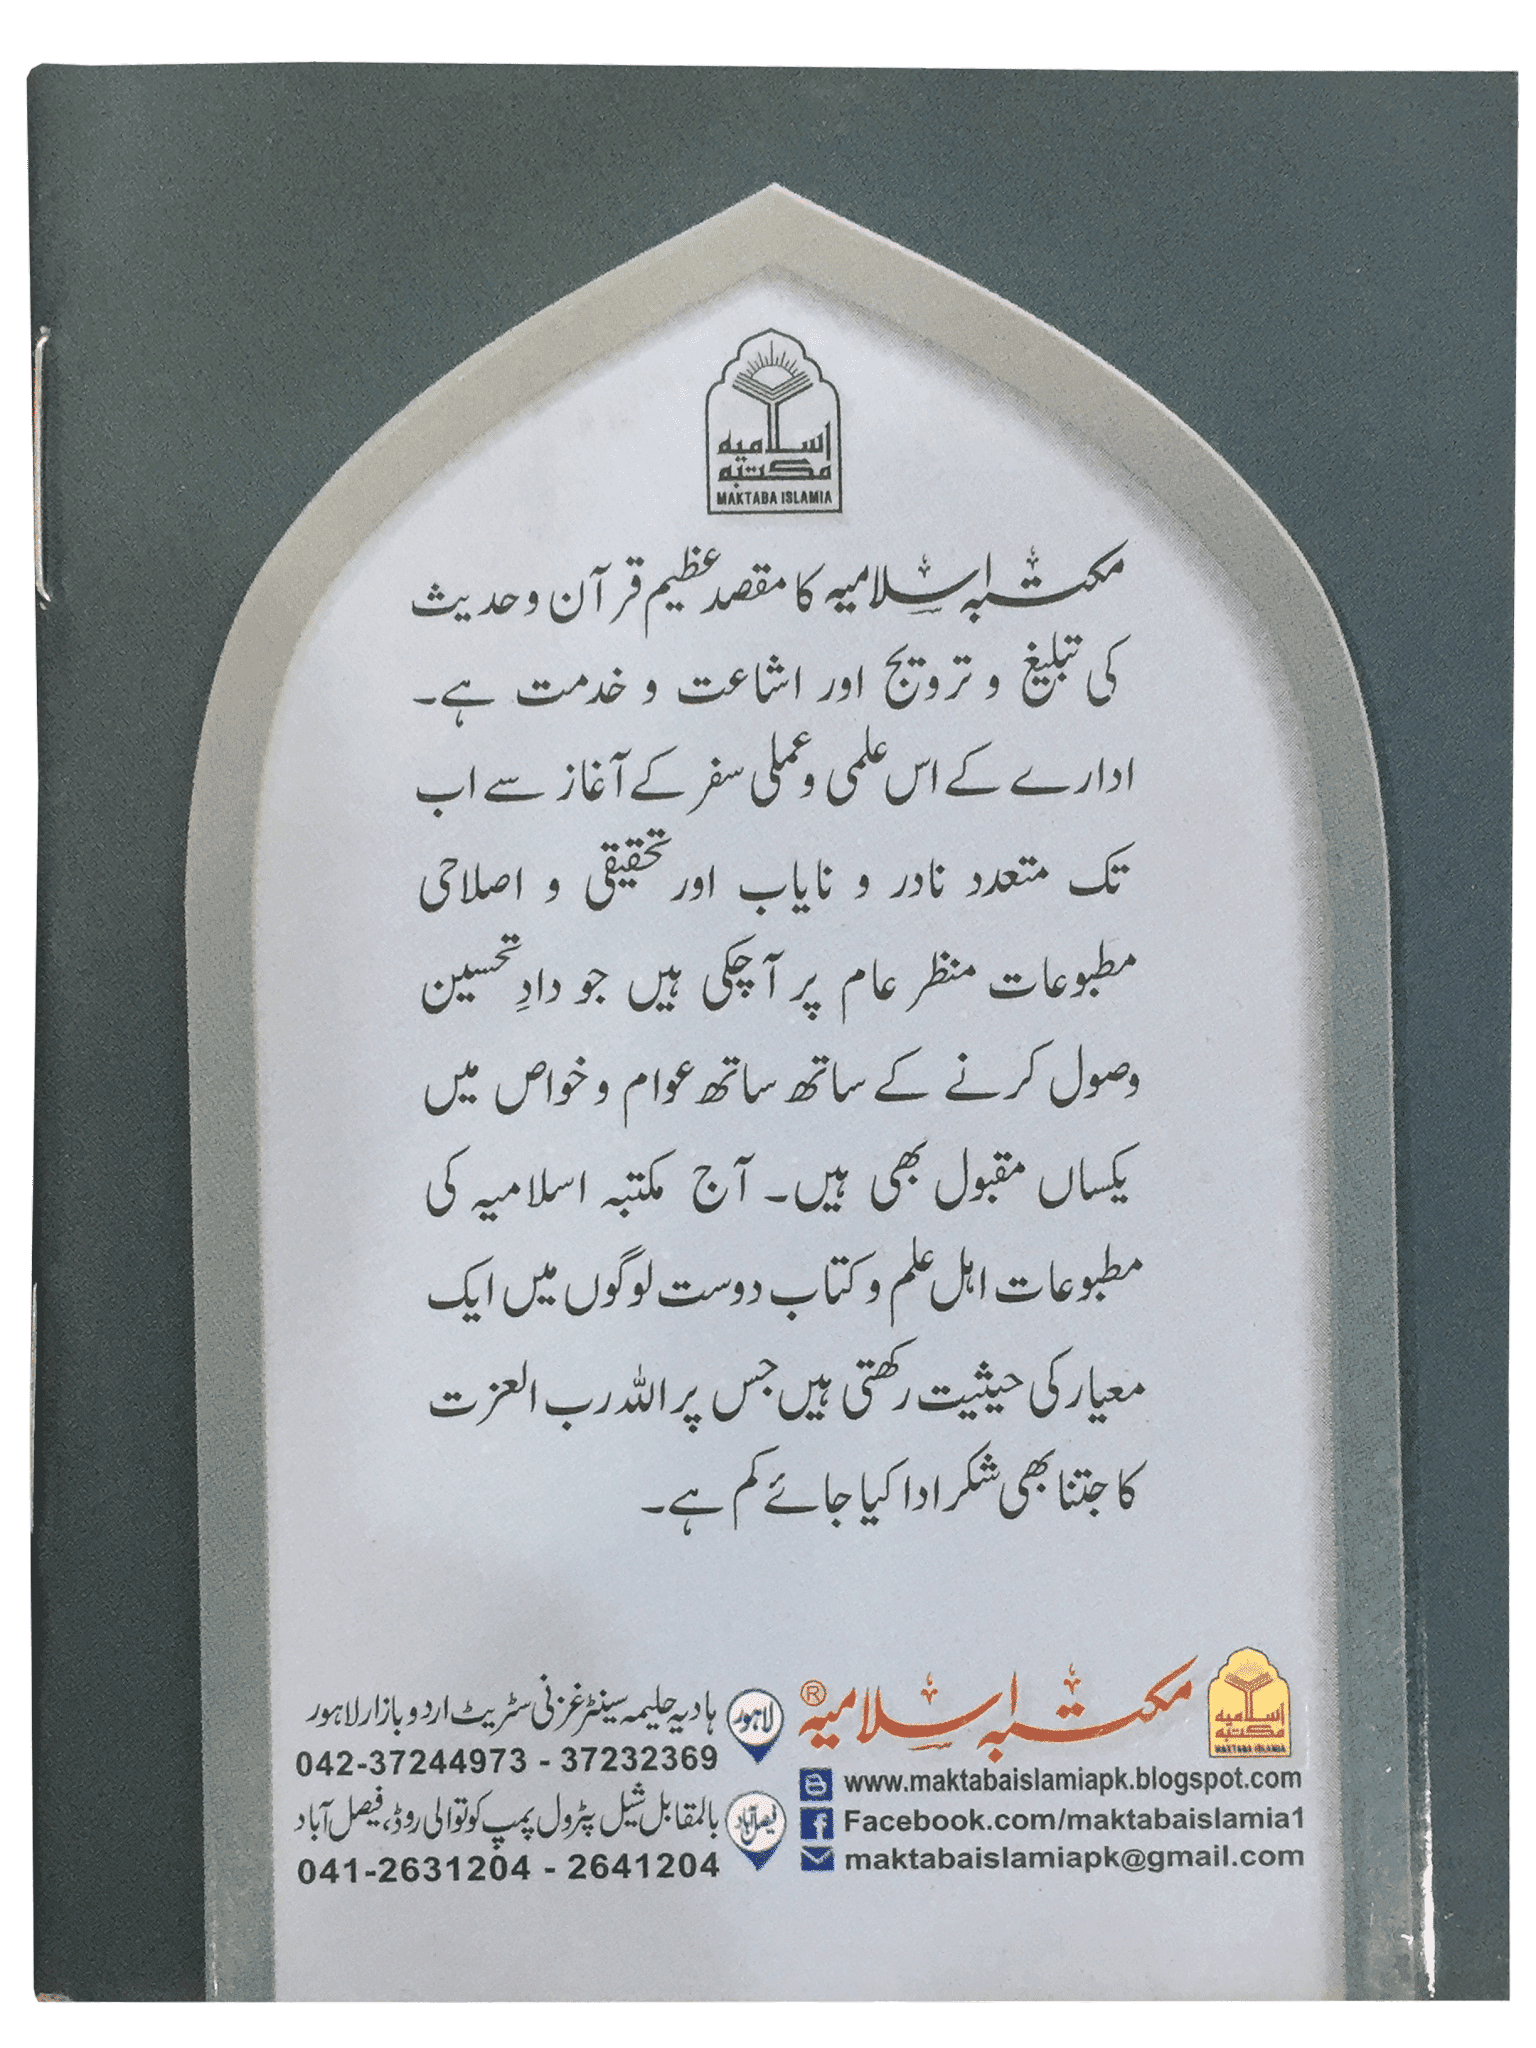 اسلامیہ
مکتبہ
MAKTABA ISLAMIA
مکتبہ اسلامیہ کا مقصد عظیم قرآن و حدیث
کی تبلیغ و ترویج اور اشاعت و خدمت ہے۔
ادارے کے اس علمی و عملی سفر کے آغاز سے اب
تک متعدد نادر و نایاب اور تحقیقی و اصلاحی
مطبوعات منظر عام پر آ چکی ہیں جو دادِ تحسین
وصول کرنے کے ساتھ ساتھ عوام و خواص میں
یکساں مقبول بھی ہیں۔ آج مکتبہ اسلامیہ کی
مطبوعات اہل علم و کتاب دوست لوگوں میں ایک
معیار کی حیثیت رکھتی ہیں جس پر اللہ رب العزت
کا جتنا بھی شکر ادا کیا جائے کم ہے۔
اسلامیہ
مکتبہ
MAKTABA ISLAMIA
مکتبہ اسلامیہ ®
www.maktabaislamiapk.blogspot.com
Facebook.com/maktabaislamia1
maktabaislamiapk@gmail.com
لاہور
ہادیہ حلیمہ سینٹر غزنی سٹریٹ اردو بازار لاہور
042-37244973 - 37232369
فیصل آباد
بالمقابل شیل پٹرول پمپ کوتوالی روڈ، فیصل آباد
041-2631204 - 2641204